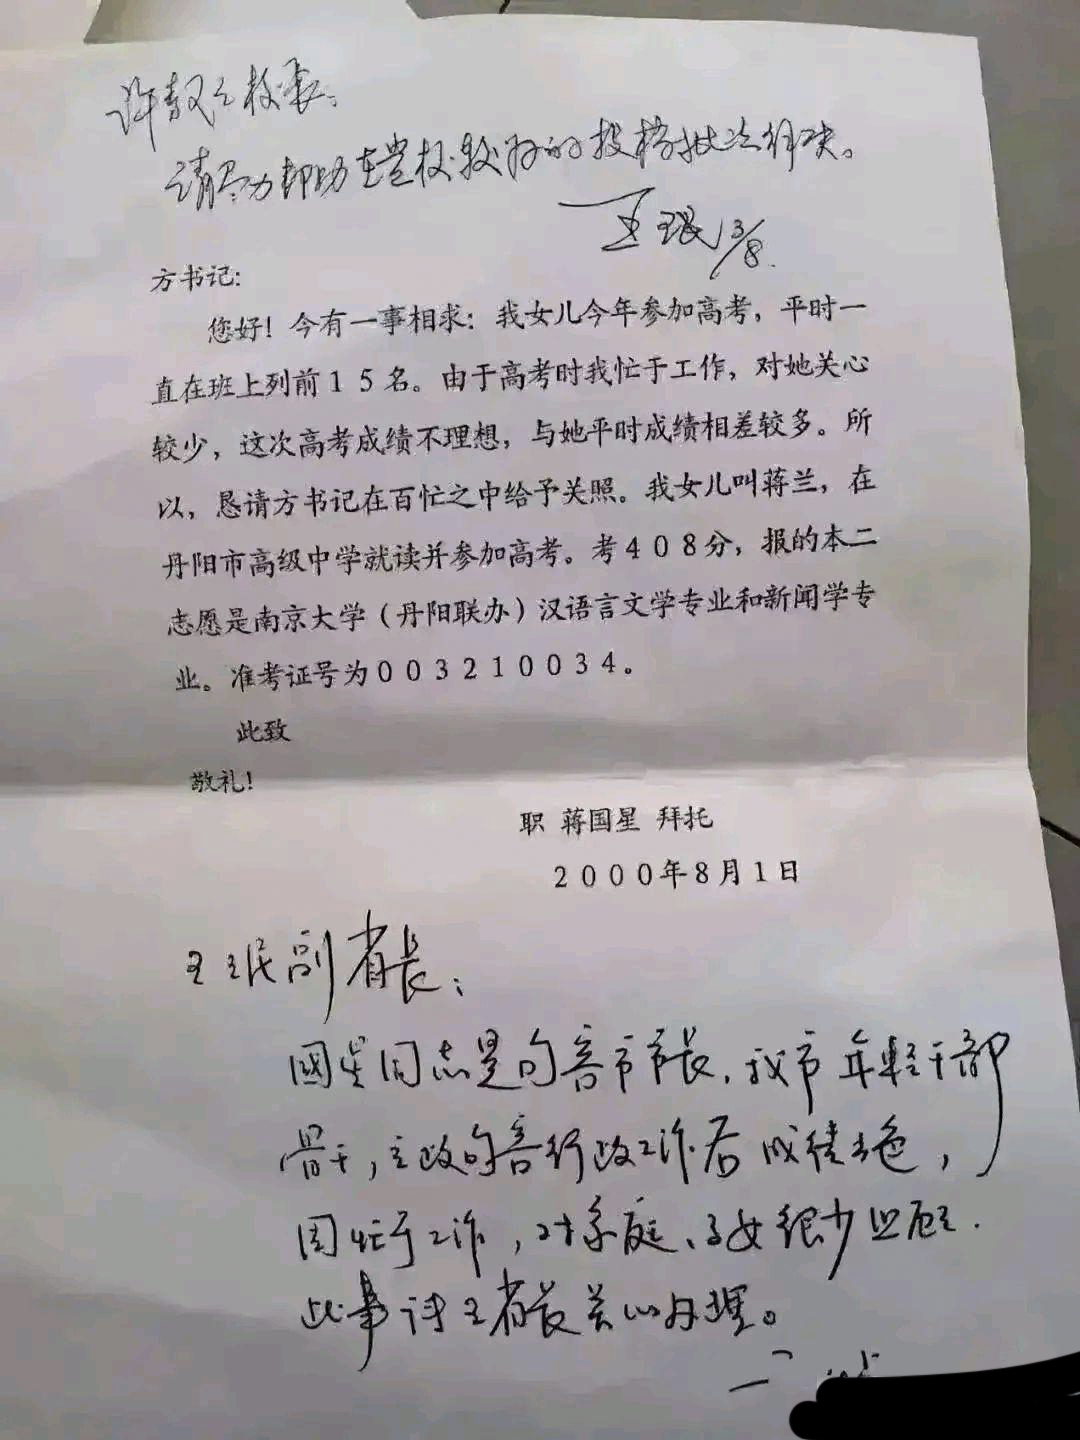 许敖敖校长：
请尽力帮助在贵校较好的投档批次解决。
王珉 3/8
方书记：
您好！今有一事相求：我女儿今年参加高考，平时一
直在班上列前15名。由于高考时我忙于工作，对她关心
较少，这次高考成绩不理想，与她平时成绩相差较多。所
以，恳请方书记在百忙之中给予关照。我女儿叫蒋兰，在
丹阳市高级中学就读并参加高考。考408分，报的本二
志愿是南京大学（丹阳联办）汉语言文学专业和新闻学专
业。准考证号为003210034。
此致
敬礼！
职 蒋国星 拜托
2000年8月1日
王珉副省长：
國星同志是句容市市长，我市年轻干部
骨干，主政句容行政工作后成绩出色，
因忙于工作，对家庭、子女很少照顾．
此事请王省长关心办理。